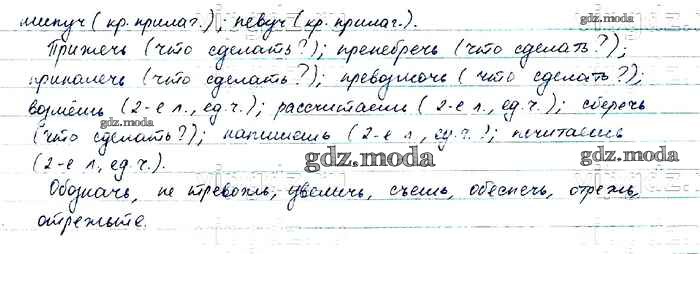 липуч (кр. прилаг.); певуч (кр. прилаг.).
Прижечь (что сделать?); пренебречь (что сделать?);
приналечь (что сделать?); превозмочь (что сделать?);
возмёшь (2-е л., ед.ч.); рассчитаешь (2-е л., ед.ч.); сберечь
(что сделать?); напишешь (2-е л., ед.ч.); почитаешь
(2-е л, ед.ч.).
Обозначь, не тревожь, увеличь, съешь, обеспечь, отрежь,
отрежьте.
gdz.moda
gdz.moda
gdz.moda
gdz.moda